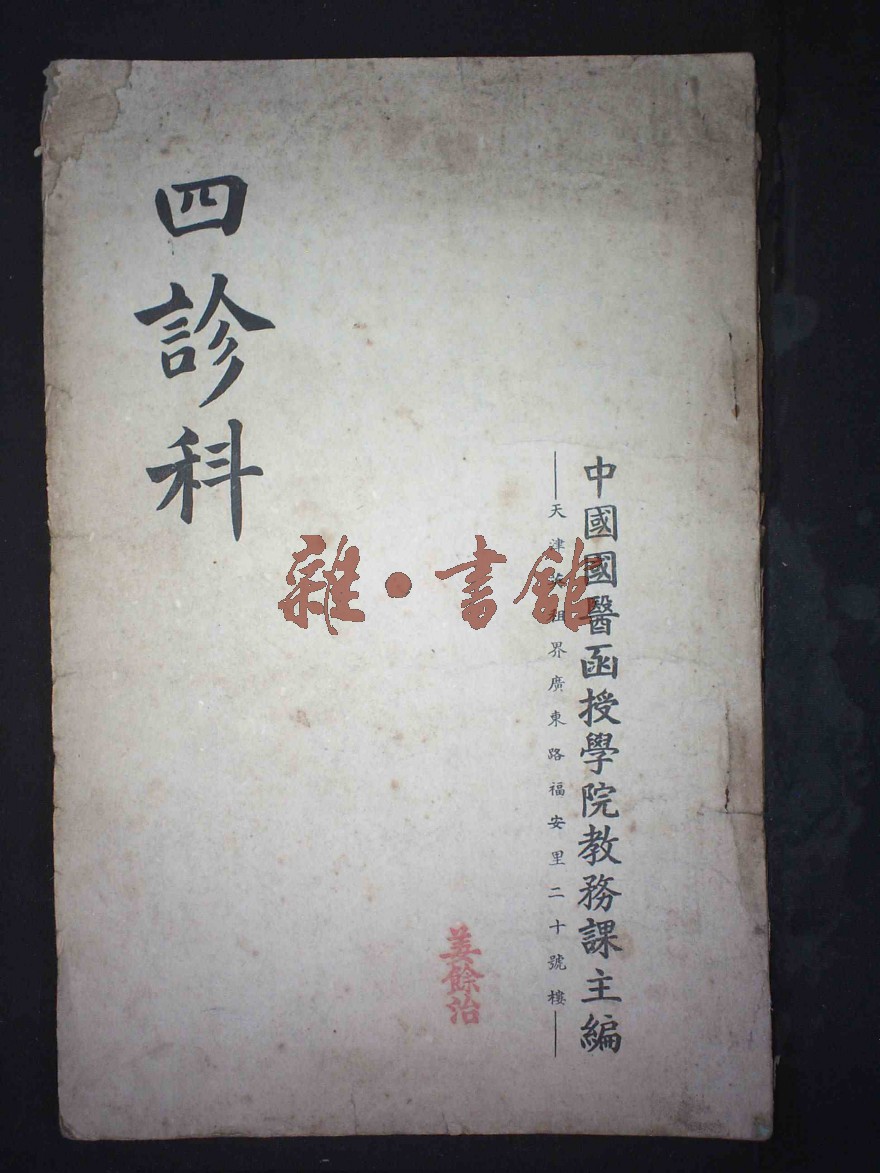 中國國醫函授學院教務課主編
天津英租界廣東路福安里二十號樓
姜餘治
四診科
雜·書館